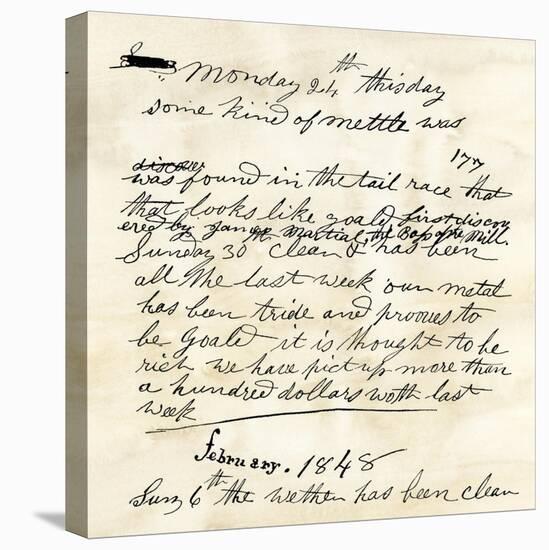 Monday 24th this day
some kind of mettle was
177
discover
was found in the tail race that
that looks like goald first discov
ered by James Martial, the Boss of the Mill.
Sunday 30th clean & has been
all the last week our metal
has been tride and prooves to
be goald it is thought to be
rich we have pict up more than
a hundred dollars woth last
week
February. 1848
Sun 6th the wether has been clean